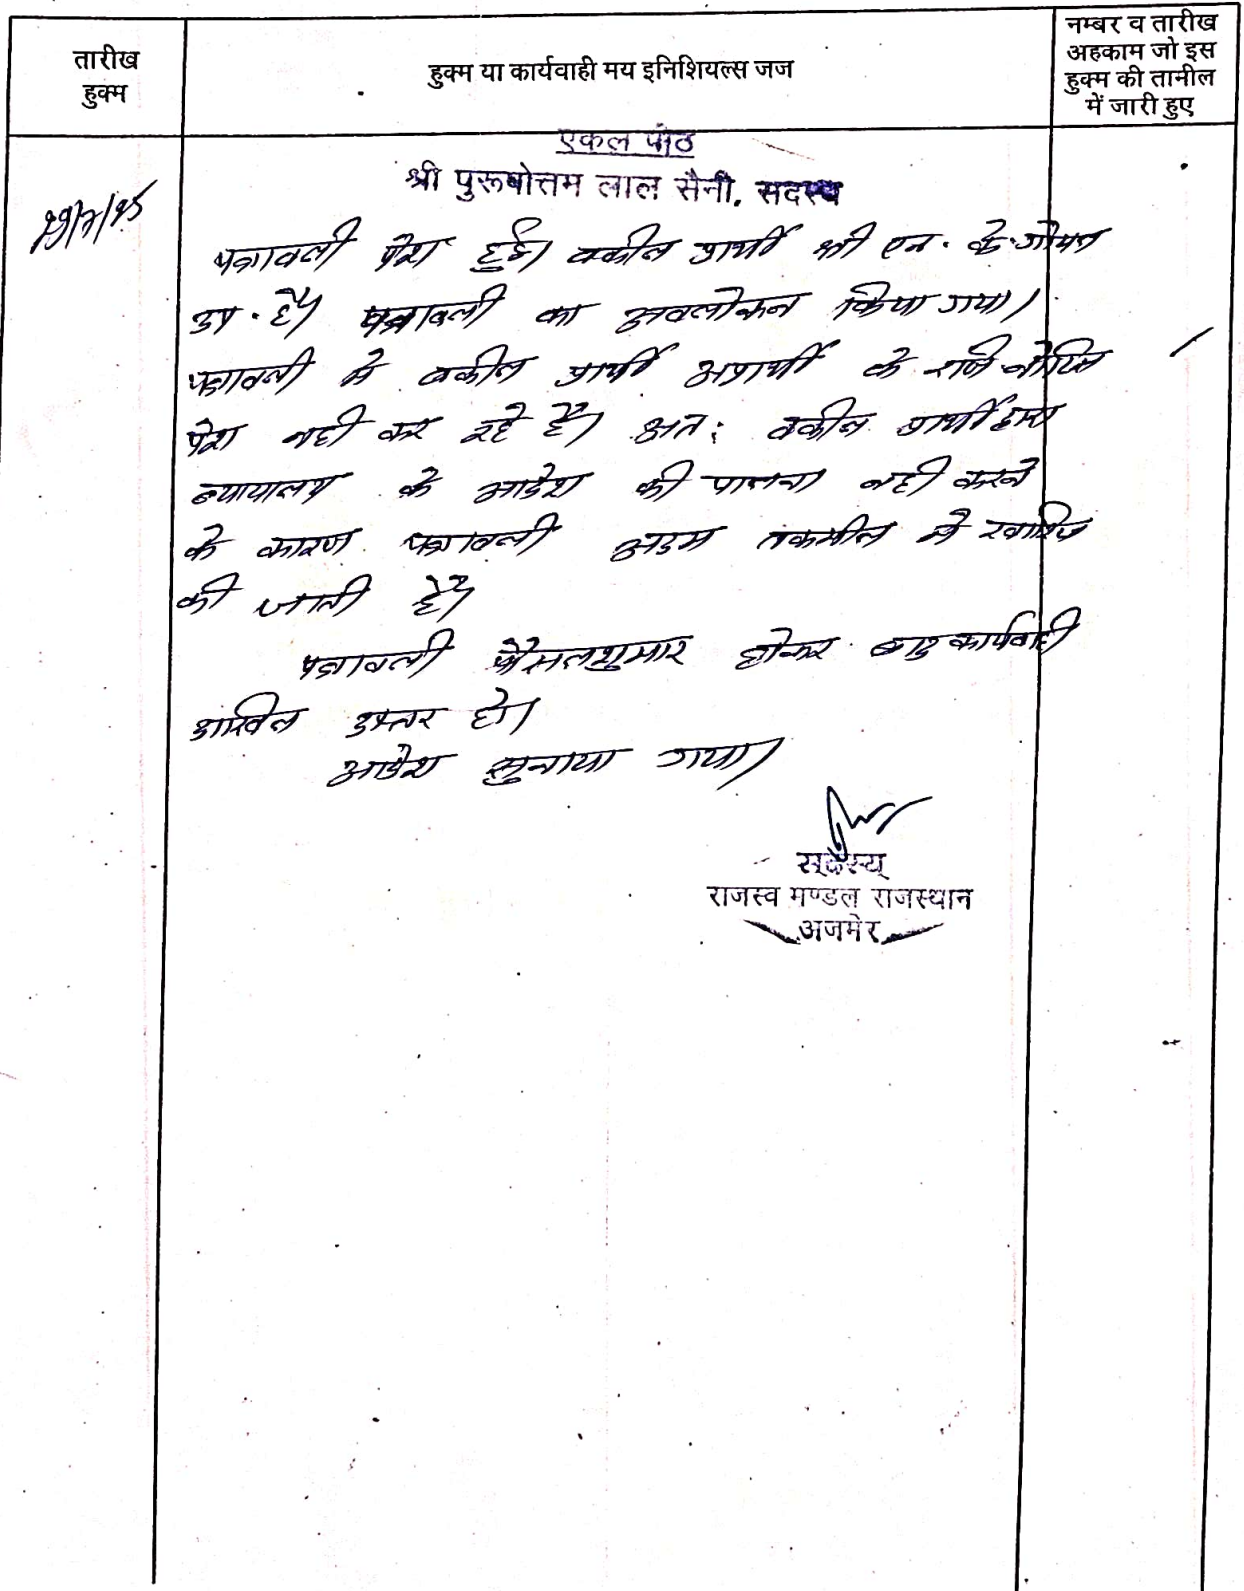 तारीख
हुक्म
हुक्म या कार्यवाही मय इनिशियल्स जज
नम्बर व तारीख
अहकाम जो इस
हुक्म की तामील
में जारी हुए
एकल पीठ
श्री पुरूषोत्तम लाल सैनी, सदस्य
पत्रावली पेश हुई। वकील प्रार्थी श्री एन. के. गोयल
उप. है। पत्रावली का अवलोकन किया गया।
पत्रावली मे वकील प्रार्थी अप्रार्थी के नोटिस
पेश नही कर रहे है। अत: वकील प्रार्थी द्वारा
न्यायालय के आदेश की पालना नही करने
के कारण पत्रावली अदम तकमील मे खारिज
की जाती है।
पत्रावली फैसलशुमार होकर बाद कार्यवाही
दाखिल दफ्तर हो।
आदेश सुनाया गया।
सदस्य
राजस्व मण्डल राजस्थान
अजमेर